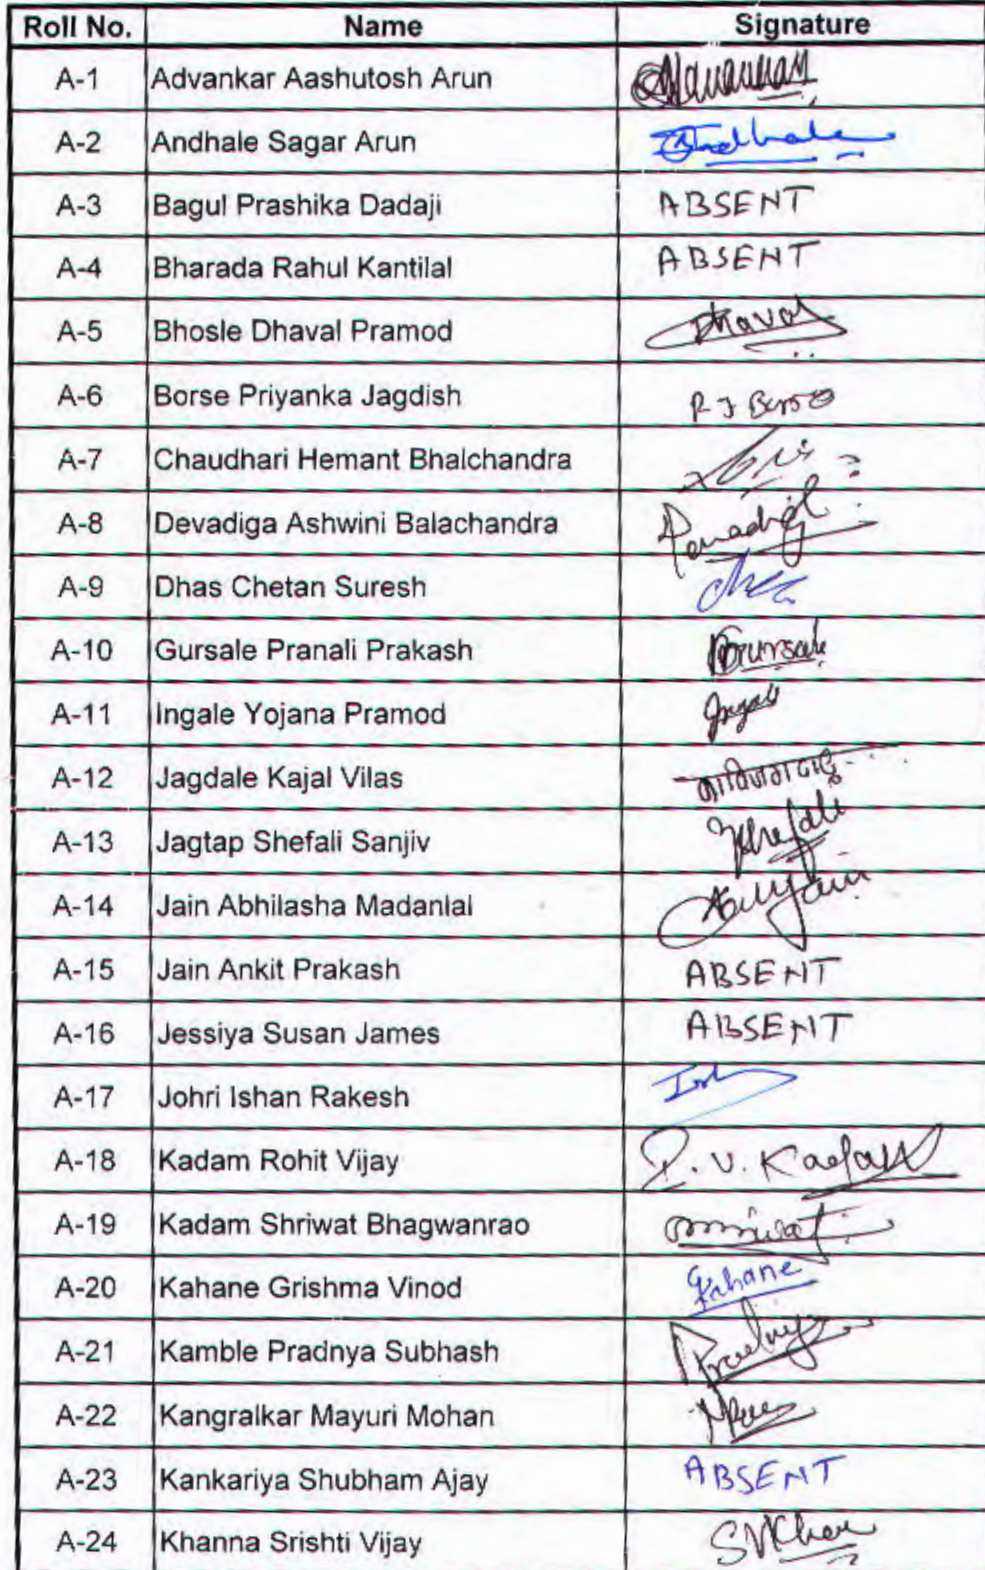 Roll No. Name Signature
A-1 Advankar Aashutosh Arun
A-2 Andhale Sagar Arun Andhale
A-3 Bagul Prashika Dadaji ABSENT
A-4 Bharada Rahul Kantilal ABSENT
A-5 Bhosle Dhaval Pramod Dhaval
A-6 Borse Priyanka Jagdish P J Borse
A-7 Chaudhari Hemant Bhalchandra
A-8 Devadiga Ashwini Balachandra
A-9 Dhas Chetan Suresh
A-10 Gursale Pranali Prakash Gursale
A-11 Ingale Yojana Pramod Ingale
A-12 Jagdale Kajal Vilas
A-13 Jagtap Shefali Sanjiv Shefali
A-14 Jain Abhilasha Madanlal
A-15 Jain Ankit Prakash ABSENT
A-16 Jessiya Susan James ABSENT
A-17 Johri Ishan Rakesh
A-18 Kadam Rohit Vijay R. V. Kadam
A-19 Kadam Shriwat Bhagwanrao
A-20 Kahane Grishma Vinod Kahane
A-21 Kamble Pradnya Subhash Pradnya
A-22 Kangralkar Mayuri Mohan
A-23 Kankariya Shubham Ajay ABSENT
A-24 Khanna Srishti Vijay